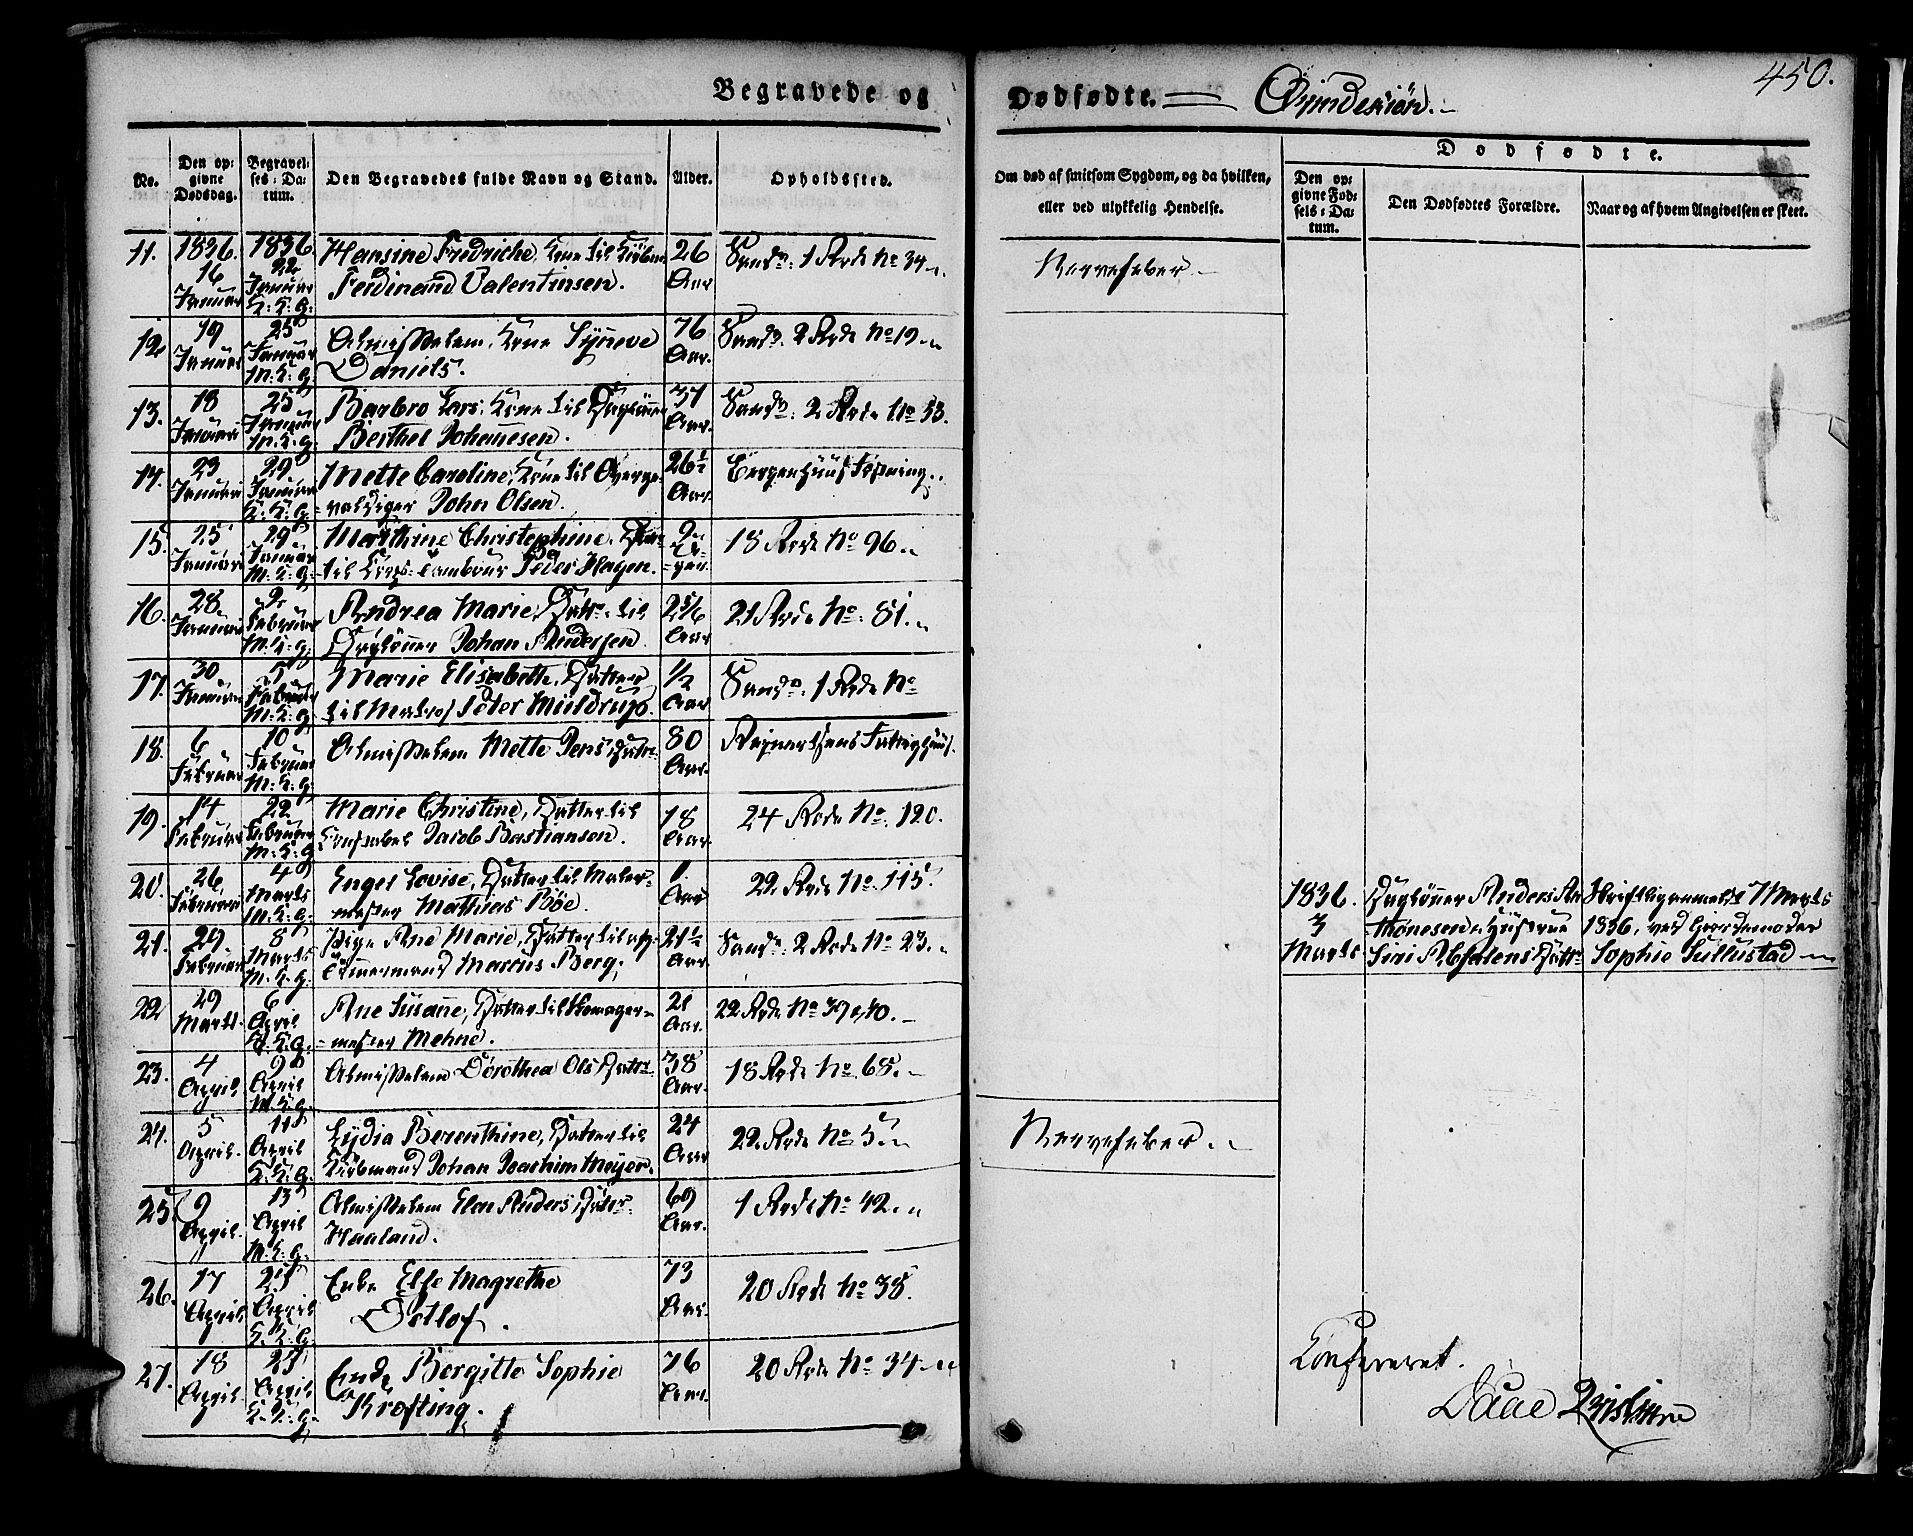 Begravede og
Dødfødte. Qvindekiön.
450.
No.
Den op:
givne
Dødsdag.
Begravel:
ses: Da:
tum.
Den Begravedes fulde Navn og Stand.
Alder.
Opholdssted.
Om død af smitsom Sygdom, og da hvilken,
eller ved ulykkelig Hendelse.
Dødfødte.
Den op:
givne Fød:
sels: Da:
tum.
Den Dødfødtes Forældre.
Naar og af hvem Angivelsen er skeet.
11. 1836. 16 Januar 1836. 22 Januar Hansine Fredriche, Kone til Kiöbm. Ferdinand Valentinsen. 26 Aar Sandv: 1 Rode No 34 Nervefeber
12. 19 Januar 25 Januar M:K:G: Almisselem, Kone Synneve Daniels. 76 Aar. Sandv. 2 Rode No 19
13. 18 Januari 25 Januar M.K.G. Barbro Lars, Kone til Daglönner Berthel Johannesen. 37 Aar. Sandv: 2 Rode No 53.
14. 23 Januari 29 Januar Mette Caroline, Kone til Overge-valdiger John Olsen. 26½ Aar. Bergenhuus Festning.
15. 25 Januari 29 Januar M:K:G: Marthine Christephine, Datter til Corps-Tambour Peder Hagen. 9 U-ger. 18 Rode No 96.
16. 28 Januari 2 Februar M.K.G. Andrea Marie, Dattr. til Daglönner Johan Andersen 2 5/6 Aar 21 Rode No: 81.
17. 30 Januar 5 Februar M:K:G: Marie Elisabeth, Datter til Matros Peter Müldrup. 1/2 Aar Sandv: 1 Rode No
18. 6 Februar 10 Februar M:K:G: Almisselem Mette Jens Datter 80 Aar. Reinertsens Fattighuus.
19. 14 Februar 22 Februar M:K:G Marie Christine, Datter til Jacob Bastiansen. 18 Aar. 24 Rode No. 120.
20. 26 Februari 4 Marts M:K:G: Engel Lovise, Datter til Maler-mester Mathias Böe. 1. Aar 22. Rode No. 115.
1836. 3 Marts. Daglönner Anders An-thonesen & Hustrue Siri Absalons Dattr. Skriftlig anmeldt 7 Marts 1836, ved Giordemoder Sophie Tullustad
21. 29 Februar 8 Marts M.K.G. Pige Ane Marie, Datter til Tömmermand Marcus Berg. 21½ Aar. Sandv. 2 Rode No 23.
22 29 Marts. 6 April Ane Susanne, Datter til Skomager-mester Mehne. 21 Aar. 22 Rode No 39 & 40.
23. 4 April. 9 April M.K.G. Almisselem Dorothea Ols Dattr. 38 Aar. 18 Rode No 68.
24. 5 April. 11 April Lydia Berenthine, Datter til Kiöbmand Johan Joachim Meyer. 24 Aar 22 Rode No 5 Nervefeber
25. 9 April. 13 April M:K:G. Almisselem Elen Anders Datter Haaland. 69 Aar. 1 Rode No 42.
26. 17 April. 25 April K.K.G: Enke Else Magrethe Östlof. 73 Aar. 20 Rode No 38.
27. 18 April. 25 April K.K.G. Enke Bergitte Sophie Krofting. 76 Aar. 20 Rode No 34
Confereret.
Daae